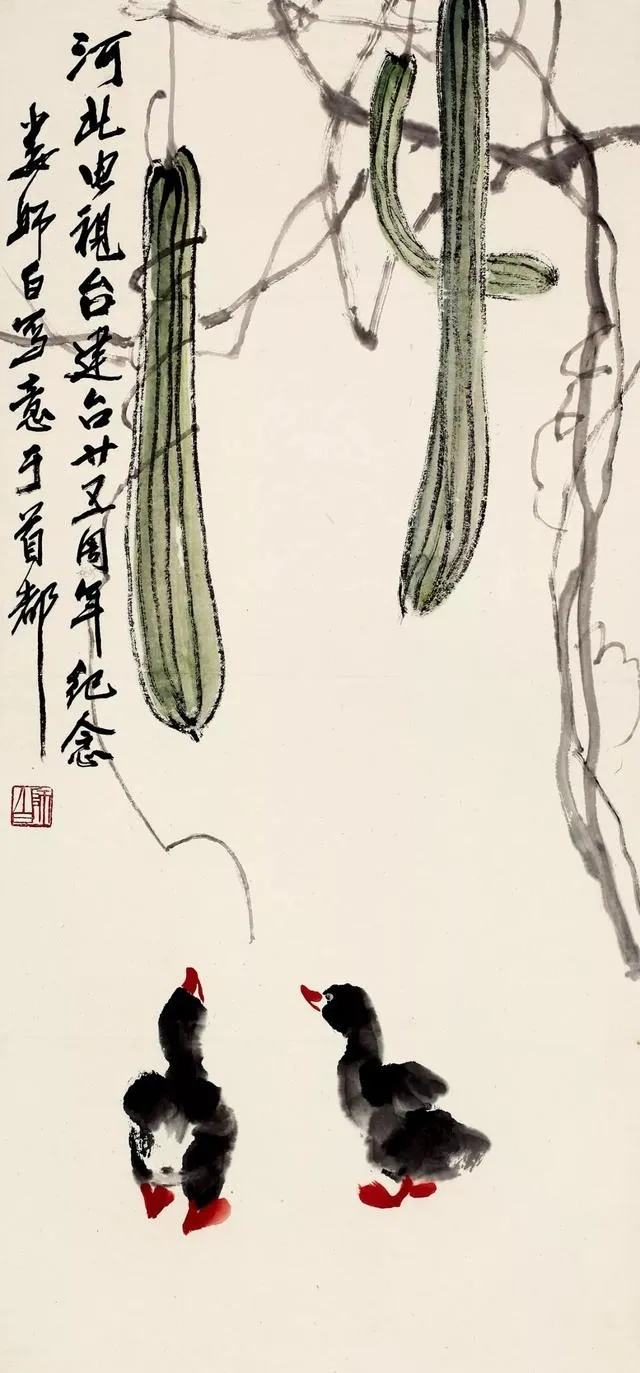 河北电视台建台廿五周年纪念
娄师白写意于首都
师白